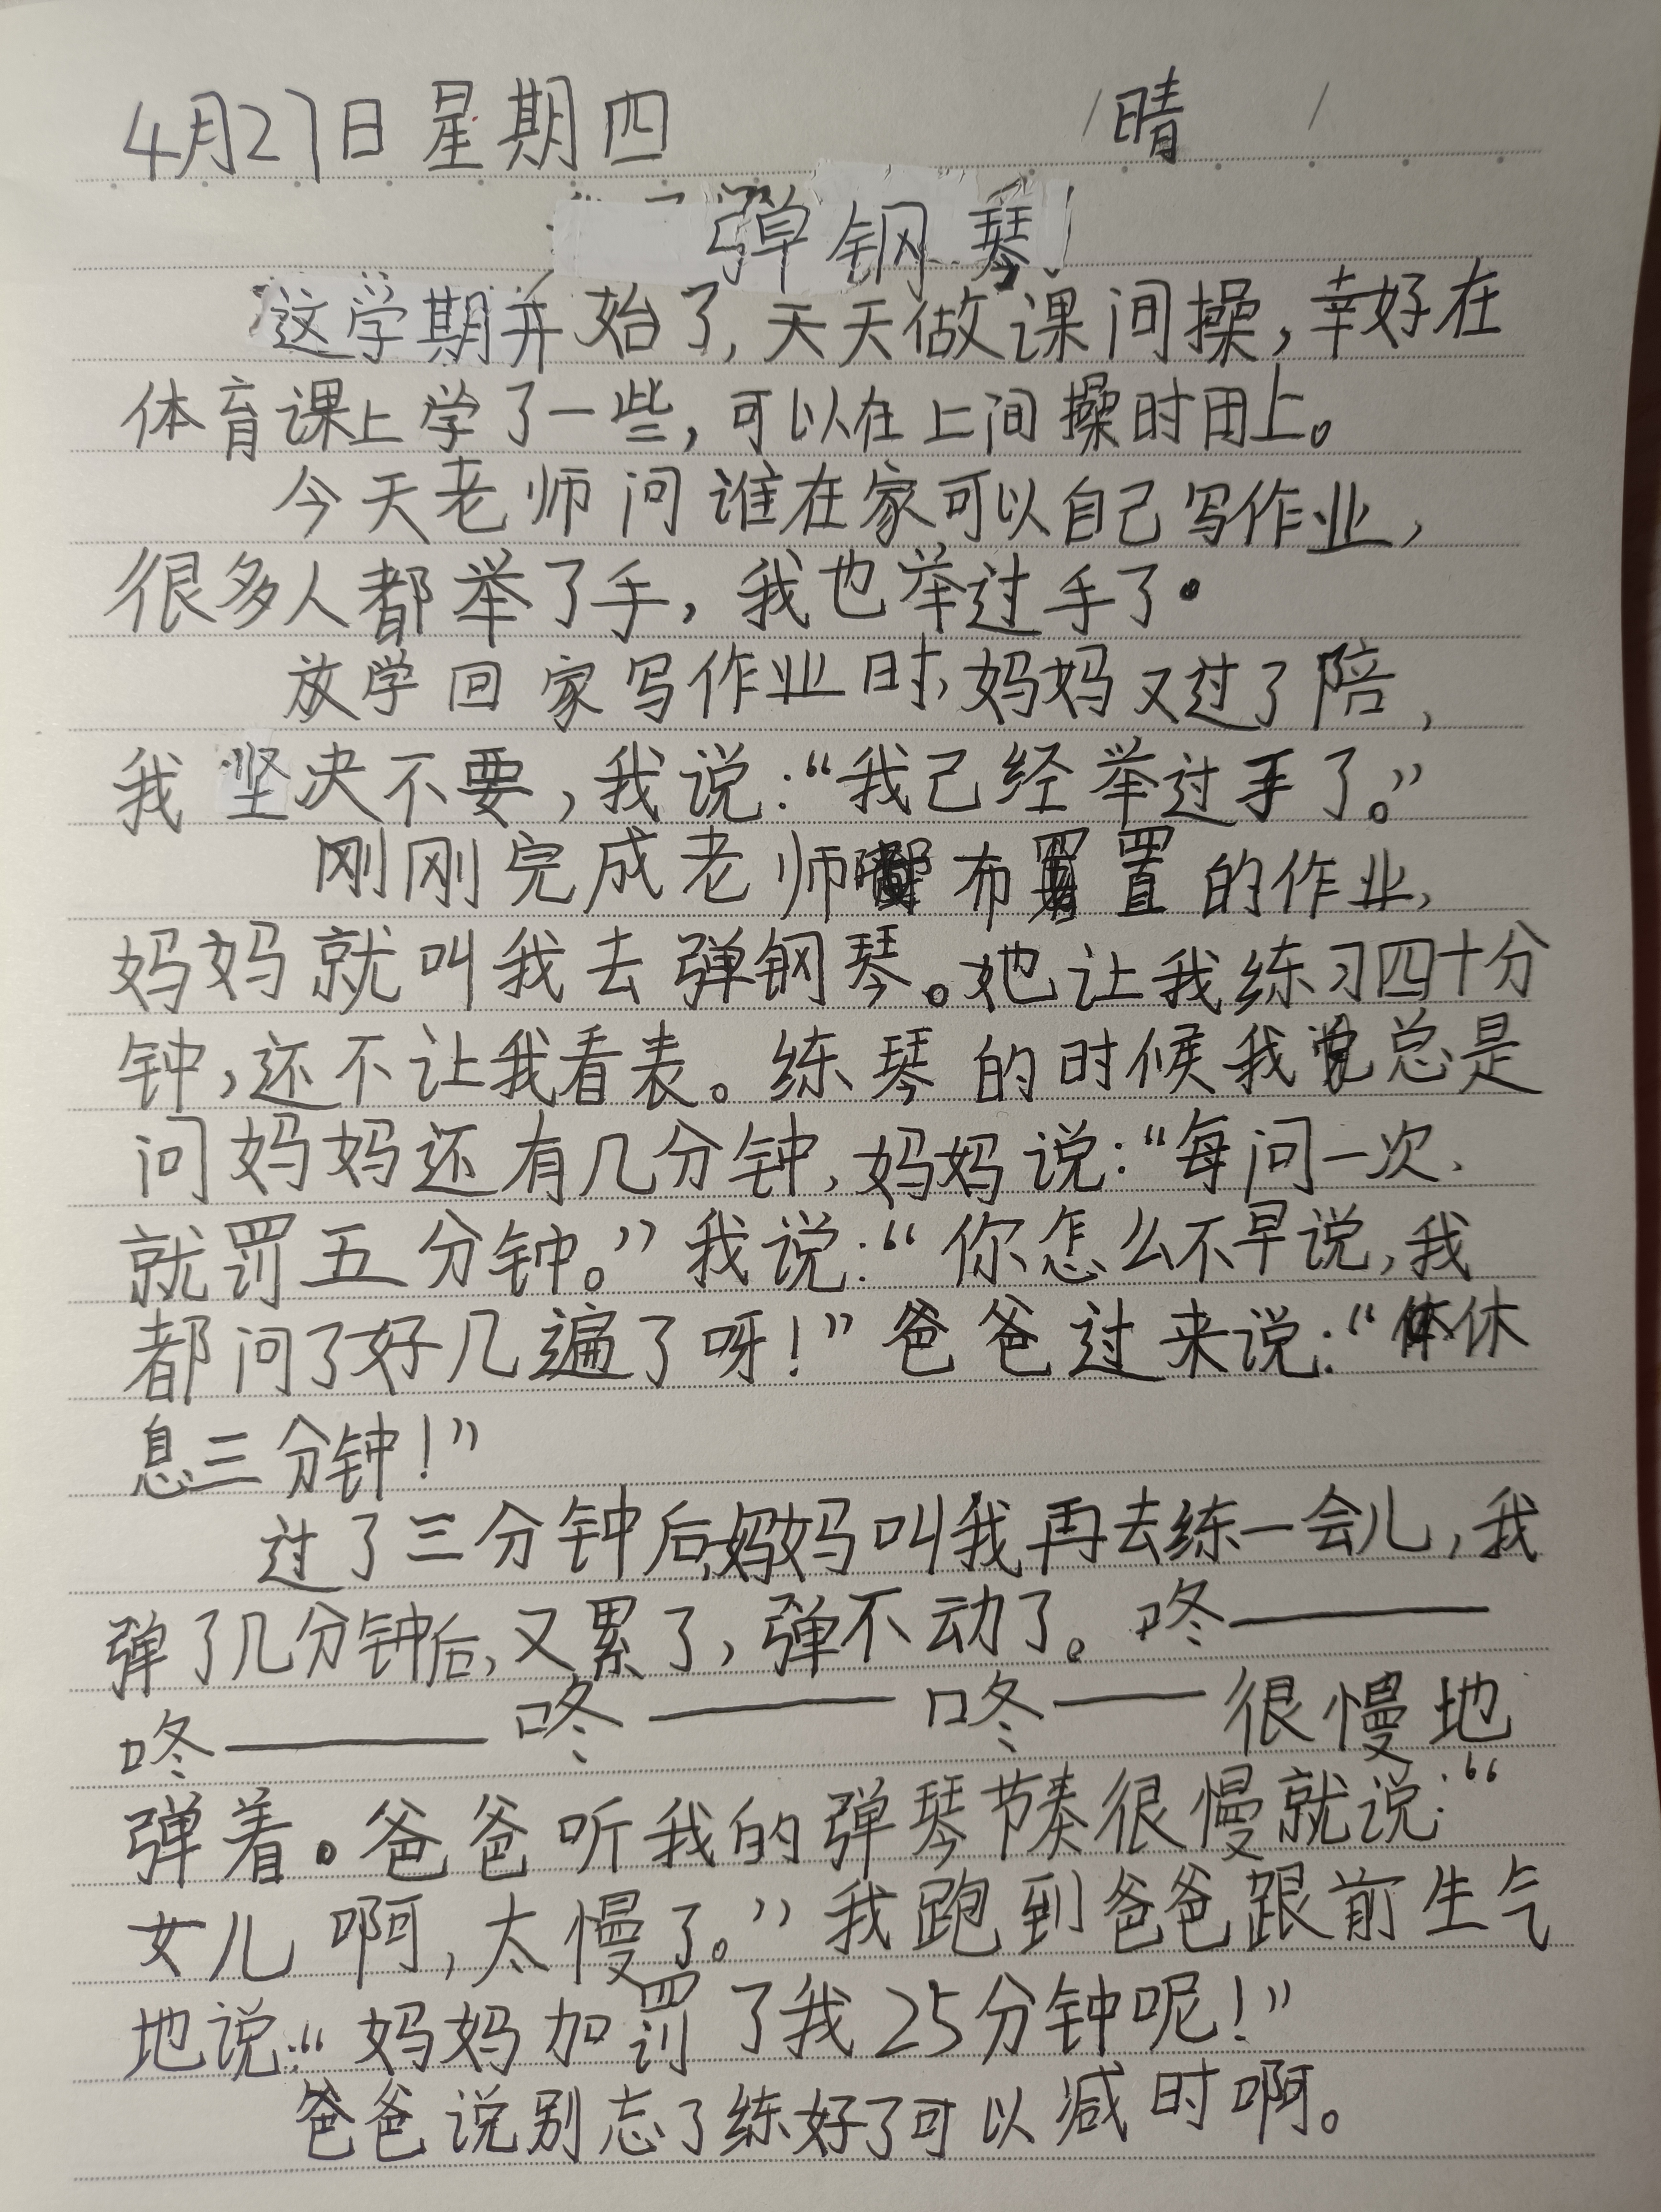 4月27日 星期四 晴
弹钢琴
这学期开始了,天天做课间操,幸好在
体育课上学了一些,可以在上间操时用上。
今天老师问谁在家可以自己写作业,
很多人都举了手,我也举过手了.
放学回家写作业时,妈妈又过了陪,
我坚决不要,我说:“我己经举过手了。”
刚刚完成老师布置的作业,
妈妈就叫我去弹钢琴。她让我练习四十分
钟,还不让我看表。练琴的时候我总是
问妈妈还有几分钟,妈妈说:“每问一次,
就罚五分钟。”我说:“你怎么不早说,我
都问了好几遍了呀!”爸爸过来说:“休
息三分钟!”
过了三分钟后,妈妈叫我再去练一会儿,我
弹了几分钟后,又累了,弹不动了。咚——
咚——咚——咚——很慢地
弹着。爸爸听我的弹琴节奏很慢就说:“
女儿啊,太慢了。”我跑到爸爸跟前生气
地说:“妈妈加罚了我25分钟呢!”
爸爸说别忘了练好了可以减时啊。